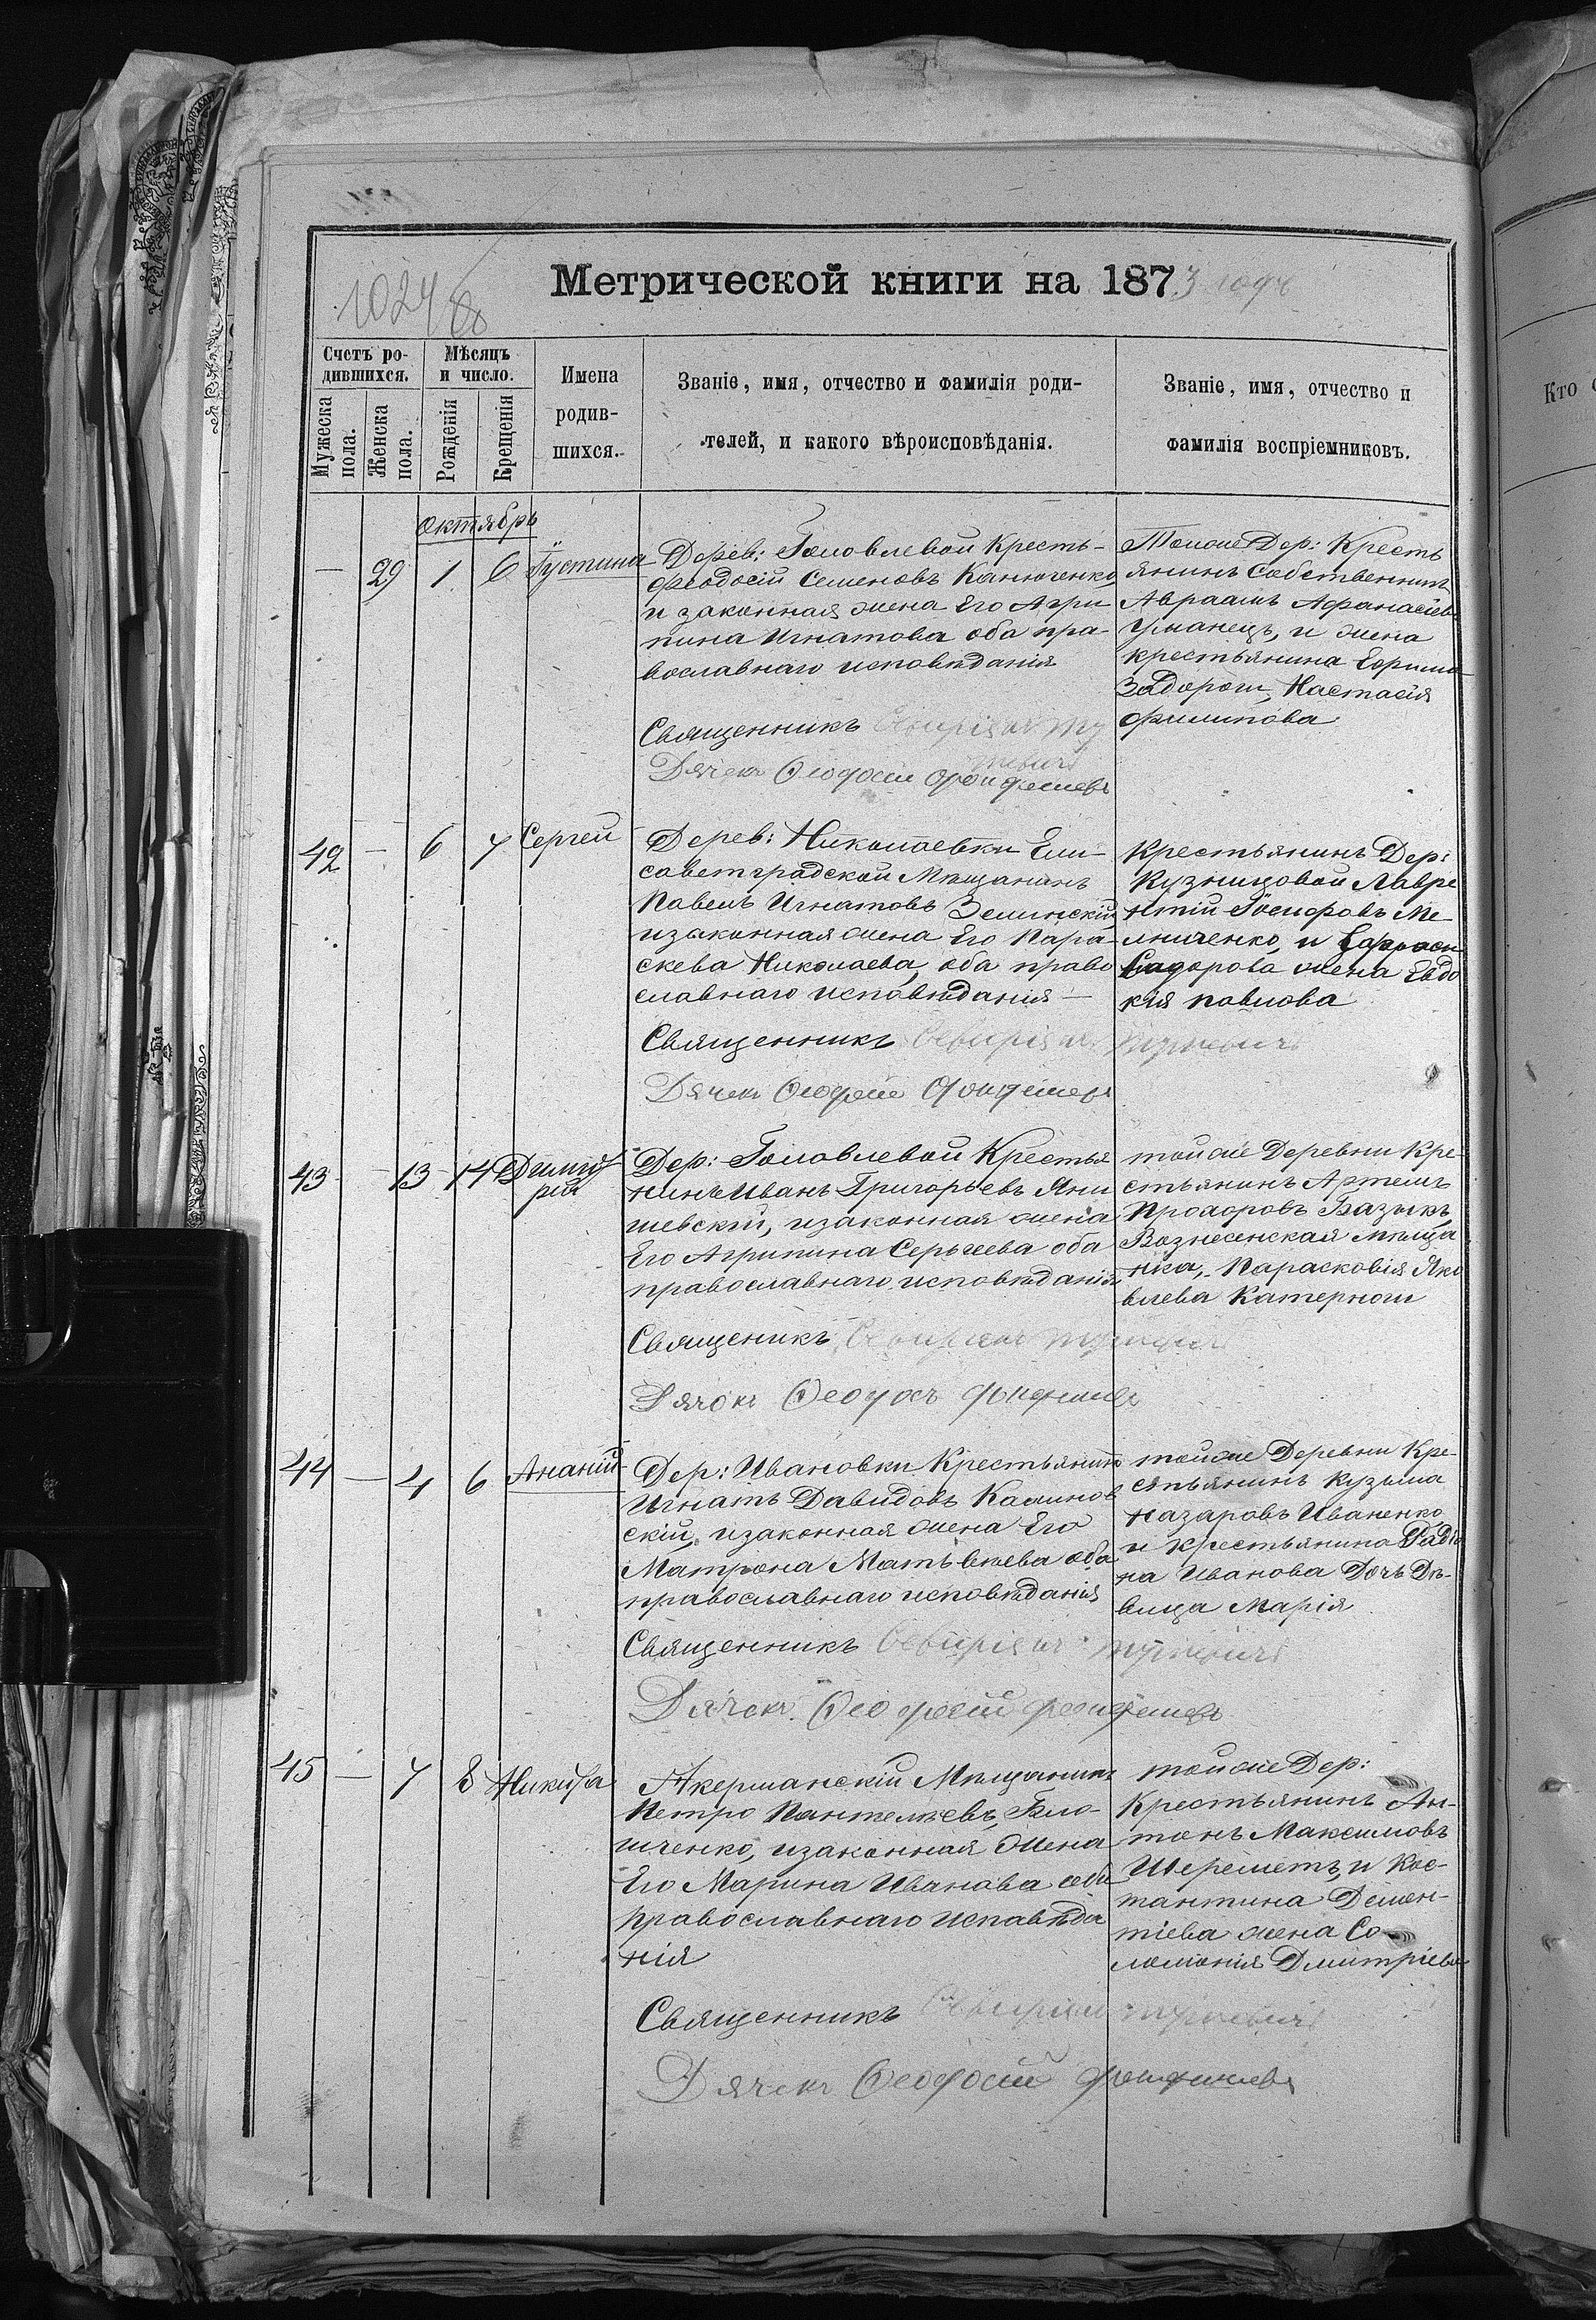 Метрической книги на 1873 году
1024
Счетъ ро-
дившихся.
Мѣсяцъ
и число.
Имена
родив-
шихся.
Званіе, имя, отчество и фамилія роди-
телей, и какого вѣроисповѣданія.
Званіе, имя, отчество и
фамилія воспріемниковъ.
Мужеска
пола.
Женска
пола.
Рожденія
Крещенія
Кто
Октябрь
— 29 1 6 Іустина
Дерев: Головлевой Кресть-
Феодосій Семеновъ Канюченко,
и законная жена Его Агри
пина Игнатова оба пра-
вославнаго исповѣданія
Священникъ
Дячекъ Ѳеодосій
Тойже Дер: Кресть
янинъ Собственникъ
Авраамъ Афанасіевъ
Уманецъ, и жена
крестьянина Ефрима
Задорожн, Настасія
Филипова
42 — 6 7 Сергей
Дерев: Николаевки Ели-
саветградской Мѣщанинъ
Павелъ Игнатовъ Зелинскій,
и законная жена Его Пара-
скева Николаева, оба право
славнаго исповѣданія —
Священникъ
Дячекъ
Крестьянинъ Дер:
Кузницовой Лавре
нтій Іосифовъ Ме-
лниченко, и
Сидорова жена Евдо
кія павлова
43 — 13 14 Димит
рій
Дер: Головлевой Крестья
нинъ Иванъ Григорьевъ Яни
шевскій, и законная жена
Его Агрипина Сергеева оба
православнаго исповѣданія,
Священикъ
Дячокъ
тойже Деревни Кре-
стьянинъ Артемъ
Прохоровъ Базыкъ,
Вознесенская мѣща
нка, Парасковія Яко
влева
44 — 4 6 Ананій
Дер: Ивановки Крестьянинъ
Игнатъ Давидовъ Калинов
скій, и законная жена Его
Матрона Матьвѣева оба
православнаго исповѣданія
Священникъ
Дячекъ Ѳеодосій
тойже Деревни Кре-
стьянинъ Кузьма
Назаровъ Иваненко,
и крестьянина Радіо
на Иванова Дочь Дѣ-
вица Марія
45 — 7 8 Никита
Акерманскій Мѣщанинъ
Петро Пантелѣевъ,
и законная Жена
Его Марина Иванова оба
православнаго исповѣда
нія
Священникъ
Дячекъ Ѳеодосій
тойже Дер:
Крестьянинъ Ан-
тонъ Максимовъ
Шереметъ, и Кос-
тантина Демен-
тіева жена Со-
ломонія Дмитріева